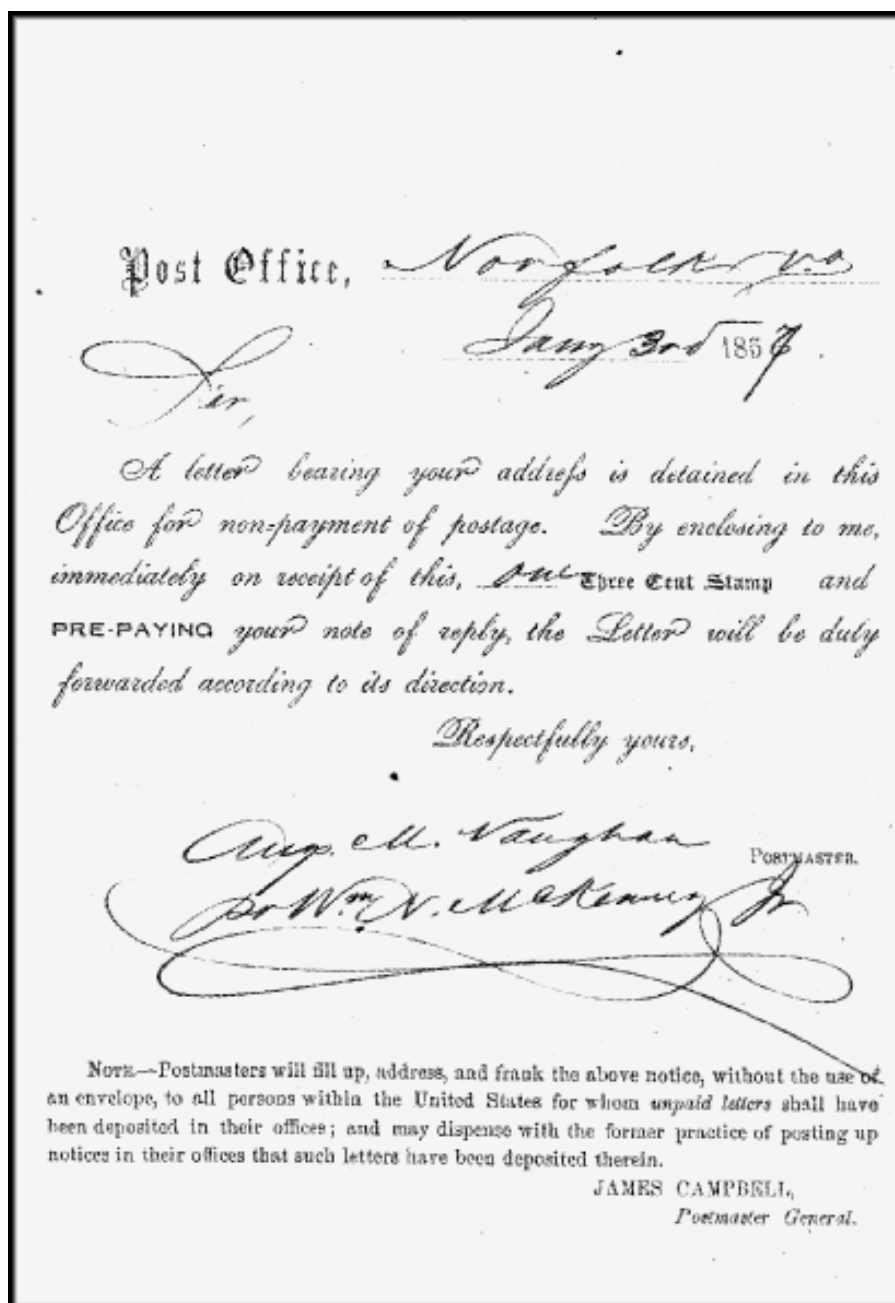 Post Office, Norfolk Va
Jany 3rd 1857.
Sir,
A letter bearing your address is detained in this
Office for non-payment of postage. By enclosing to me,
immediately on receipt of this, one Three Cent Stamp and
PRE-PAYING your note of reply, the Letter will be duly
forwarded according to its direction.
Respectfully yours,
Aug. M. Vaughan
POSTMASTER.
pr Wm N. McKenney Jr
NOTE.—Postmasters will fill up, address, and frank the above notice, without the use of
an envelope, to all persons within the United States for whom unpaid letters shall have
been deposited in their offices; and may dispense with the former practice of posting up
notices in their offices that such letters have been deposited therein.
JAMES CAMPBELL,
Postmaster General.